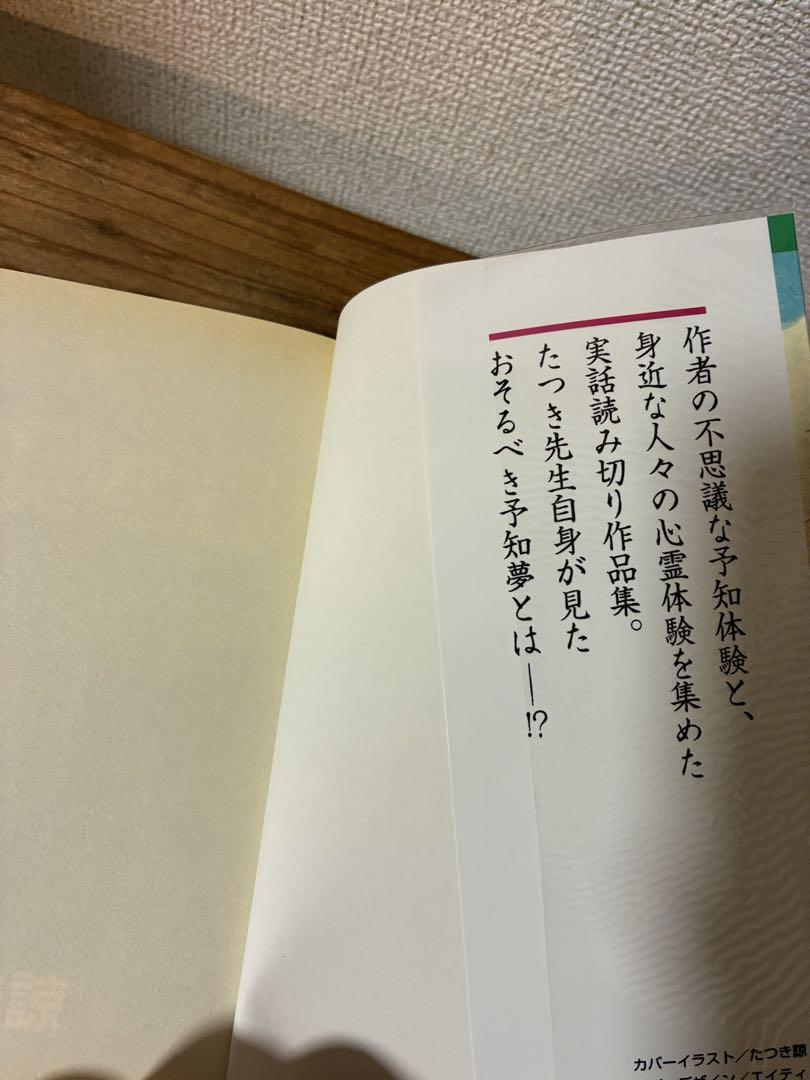 作者の不思議な予知体験と、
身近な人々の心霊体験を集めた
実話読み切り作品集。
たつき先生自身が見た
おそるべき予知夢とは―!?
カバーイラスト/たつき諒
デザイン/エイティ
諒